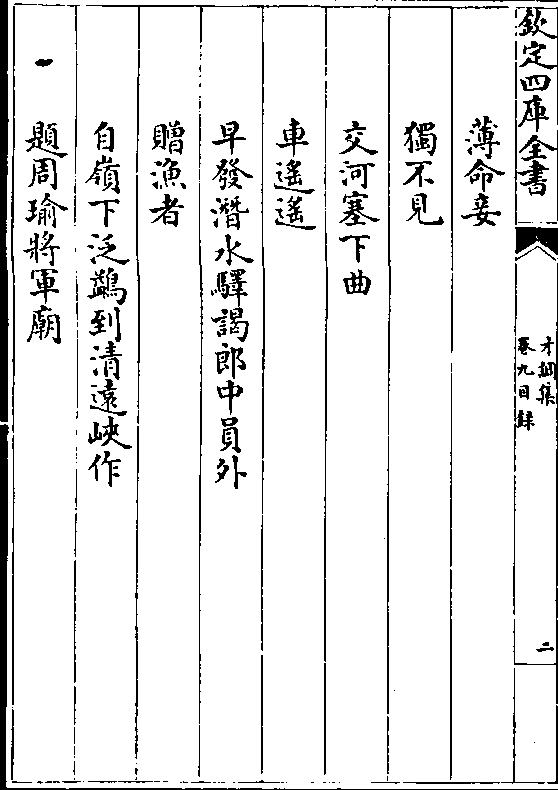 欽定四庫全書
才調集
卷九目錄
二
薄命妾
獨不見
交河塞下曲
車遥遥
早發潛水驛謁郎中員外
贈漁者
自嶺下泛鷁到清遠峽作
題周瑜將軍廟